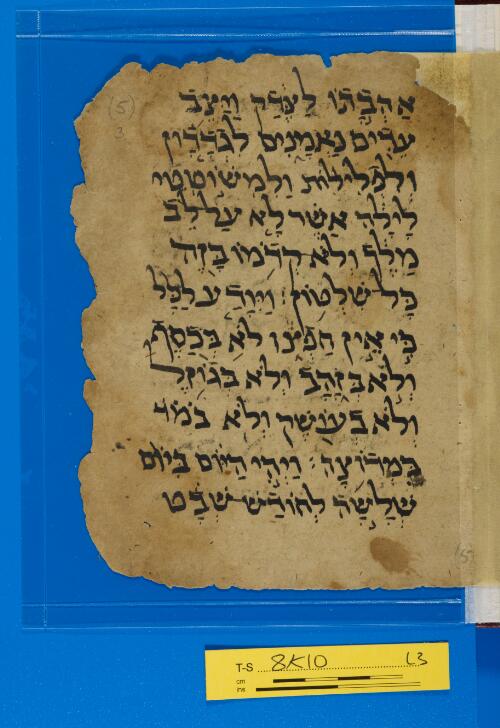 אהבתו לצדק ויצב
עדים נאמנים
ולפלילות ולמישוטטי
לילה אשר לא
מלך ולא קדמו בזה
כל שלטון
כי אין חפצו לא בכסף
ולא בזהב ולא בגוזל
ולא בעושק ולא
במרוצה ויהי היום ביום
שלשה לחודש שבט
(5)
3
T-S 8K10 L3
cm
ins